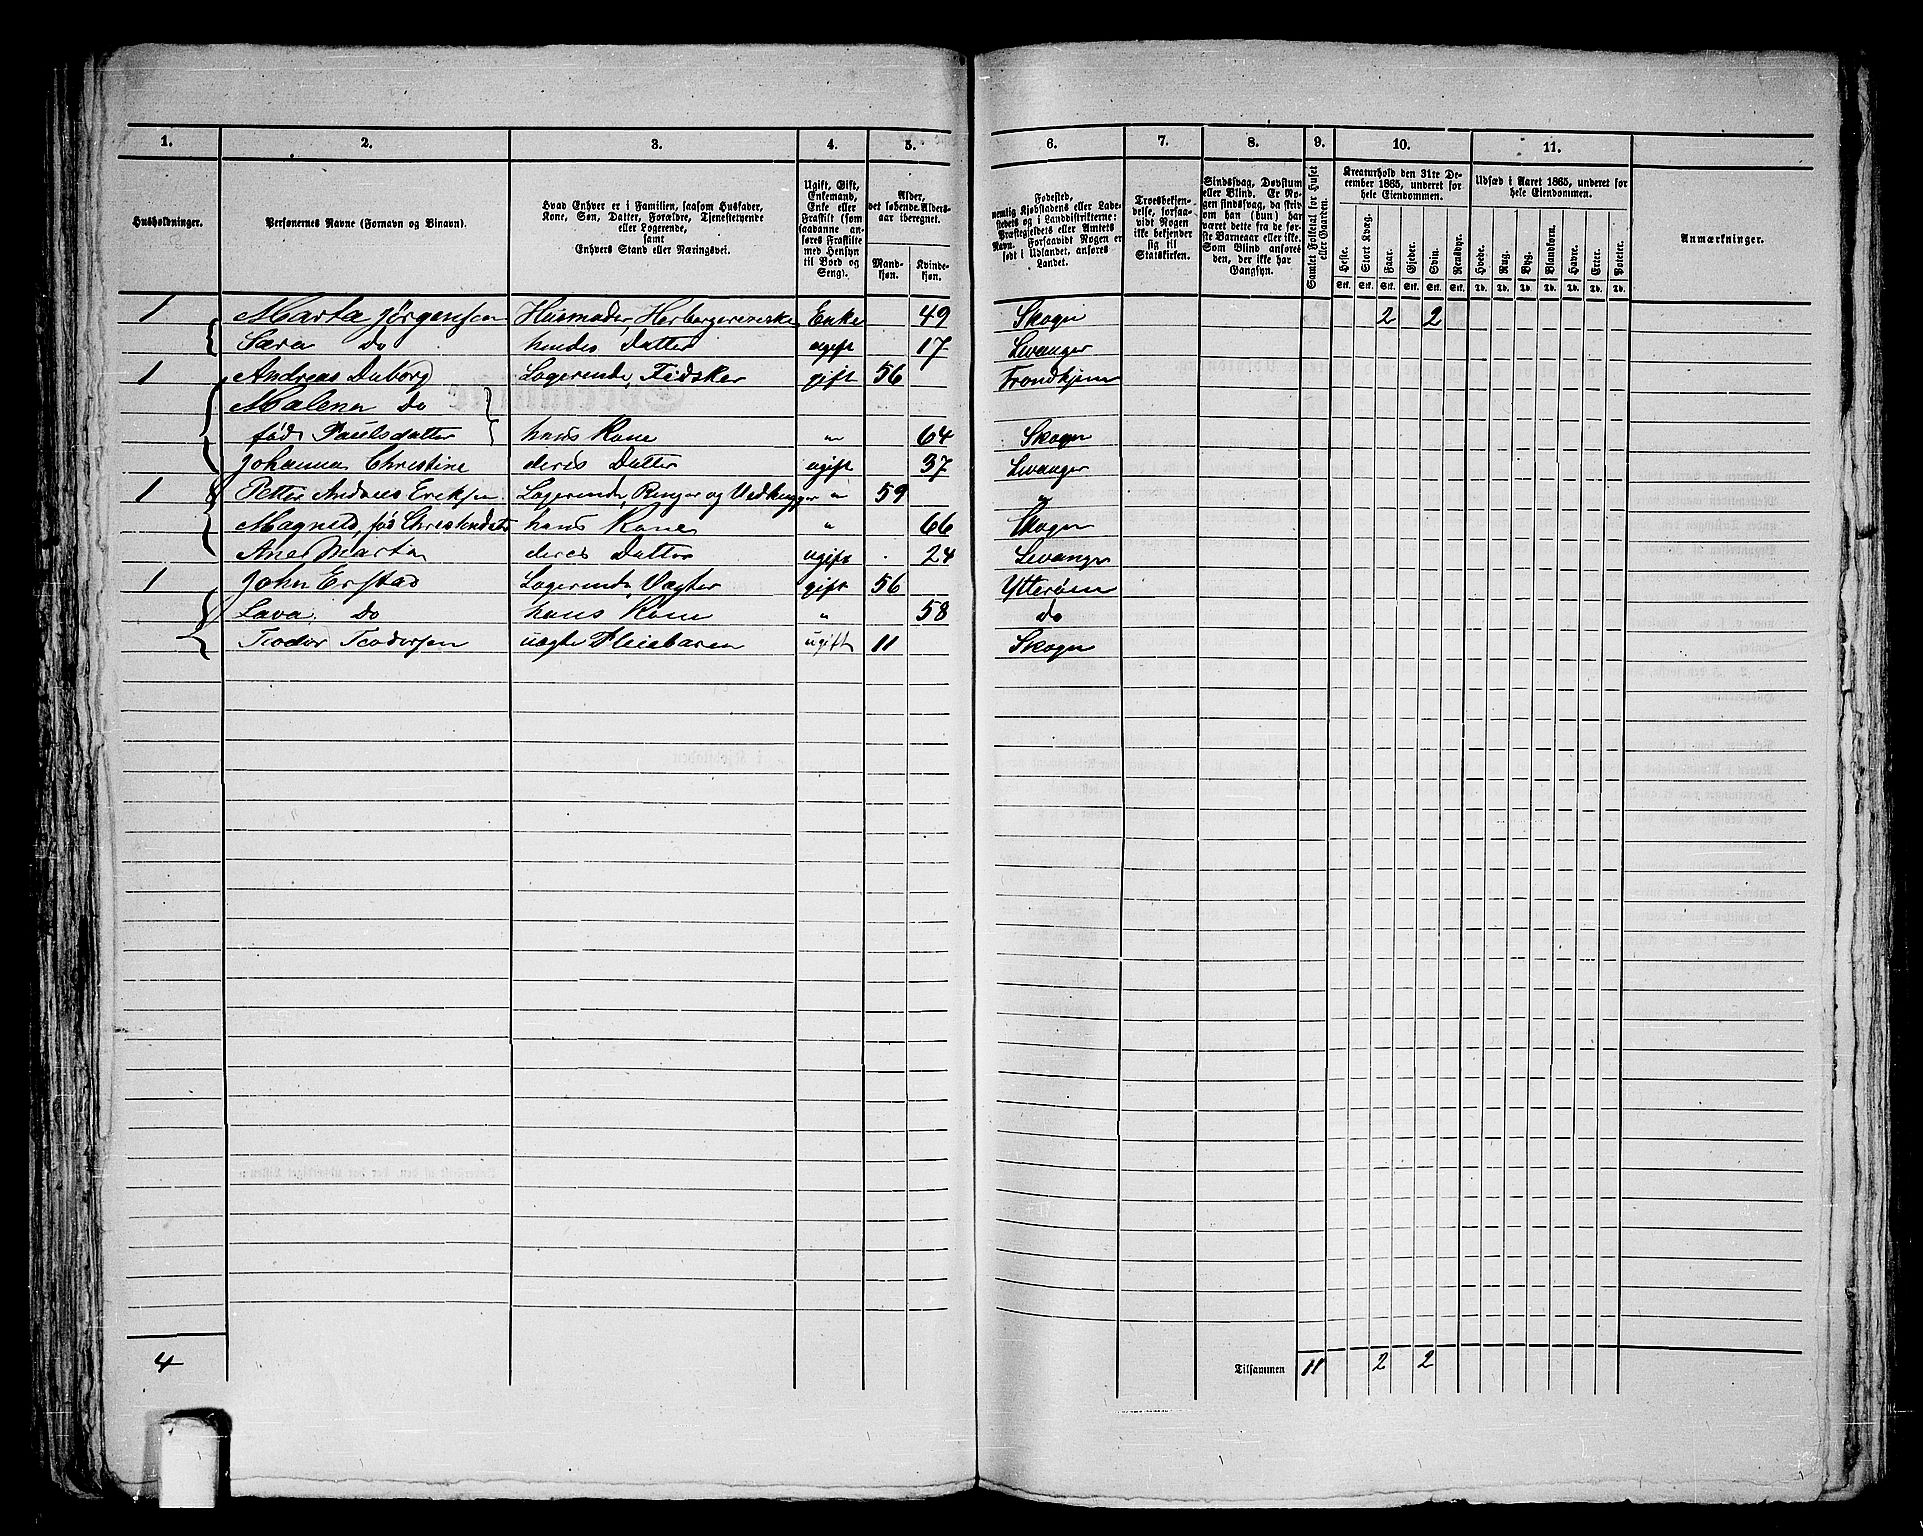 1. 2. 3. 4. 5. 6. 7. 8. 9. 10. 11.
Husholdninger.
Personernes Navne (Fornavn og Binavn).
Hvad Enhver er i Familien, saasom Husfader,
Kone, Søn, Datter, Forældre, Tjenestetyende
eller Logerende,
samt
Enhvers Stand eller Næringsvei.
Ugift, Gift,
Enkemand,
Enke eller
Fraskilt (som
saadanne an-
føres Fraskilte
med Hensyn
til Bord og
Seng).
Alder,
det løbende Alders-
aar iberegnet.
Mand-
kjøn.
Kvinde-
kjøn.
Fødested,
nemlig Kjøbstadens eller Lade-
stedets og i Landdistrikterne:
Præstegjeldets eller Amtets
Navn. Forsaavidt Nogen er
født i Udlandet, anføres
Landet.
Troesbekjen-
delse, forsaa-
vidt Nogen
ikke bekjender
sig til
Statskirken.
Sindssvag, Døvstum
eller Blind. Er No-
gen sindssvag, da skriv
om han (hun) har
været dette fra de før-
ste Barneaar eller ikke.
Som Blind anføres
den, der ikke har
Gangsyn.
Samlet Folketal for Huset
eller Gaarden.
Kreaturhold den 31te De-
cember 1865, underet for
hele Eiendommen.
Heste. Stort Kvæg. Faar. Gjeder. Svin. Rensdyr.
Stk. Stk. Stk. Stk. Stk. Stk.
Udsæd i Aaret 1865, underet for
hele Eiendommen.
Hvede. Rug. Byg. Blandkorn. Havre. Erter. Poteter.
Td. Td. Td. Td. Td. Td. Td.
Anmærkninger.
1 Marta Jørgensen Husmoder, Herbergererske Enke 49 Skogn 2 2
Sara Do hendes Datter ugift 17 Levanger
1 Andreas Duborg Logerende, Fidsker gift 56 Trondhjem
Malena Do
født Paulsdatter hans Kone " 64 Skogn
Johanna Christine deres Datter ugift 37 Levanger
1 Petter Andreas Eriksen Logerende, Ringer og Vedhugger " 59 "
Magnild, fød Christendatr hans Kone " 66 Skogn
Ane Martin deres Datter ugift 24 Levanger
1 John Erstad Logerende, Vægter gift 56 Ytterøen
Lava Do hans Kone " 58 do
Teodor Teodorsen uægte Pleiebaren ugift 11 Skogn
4 Tilsammen 11 2 2